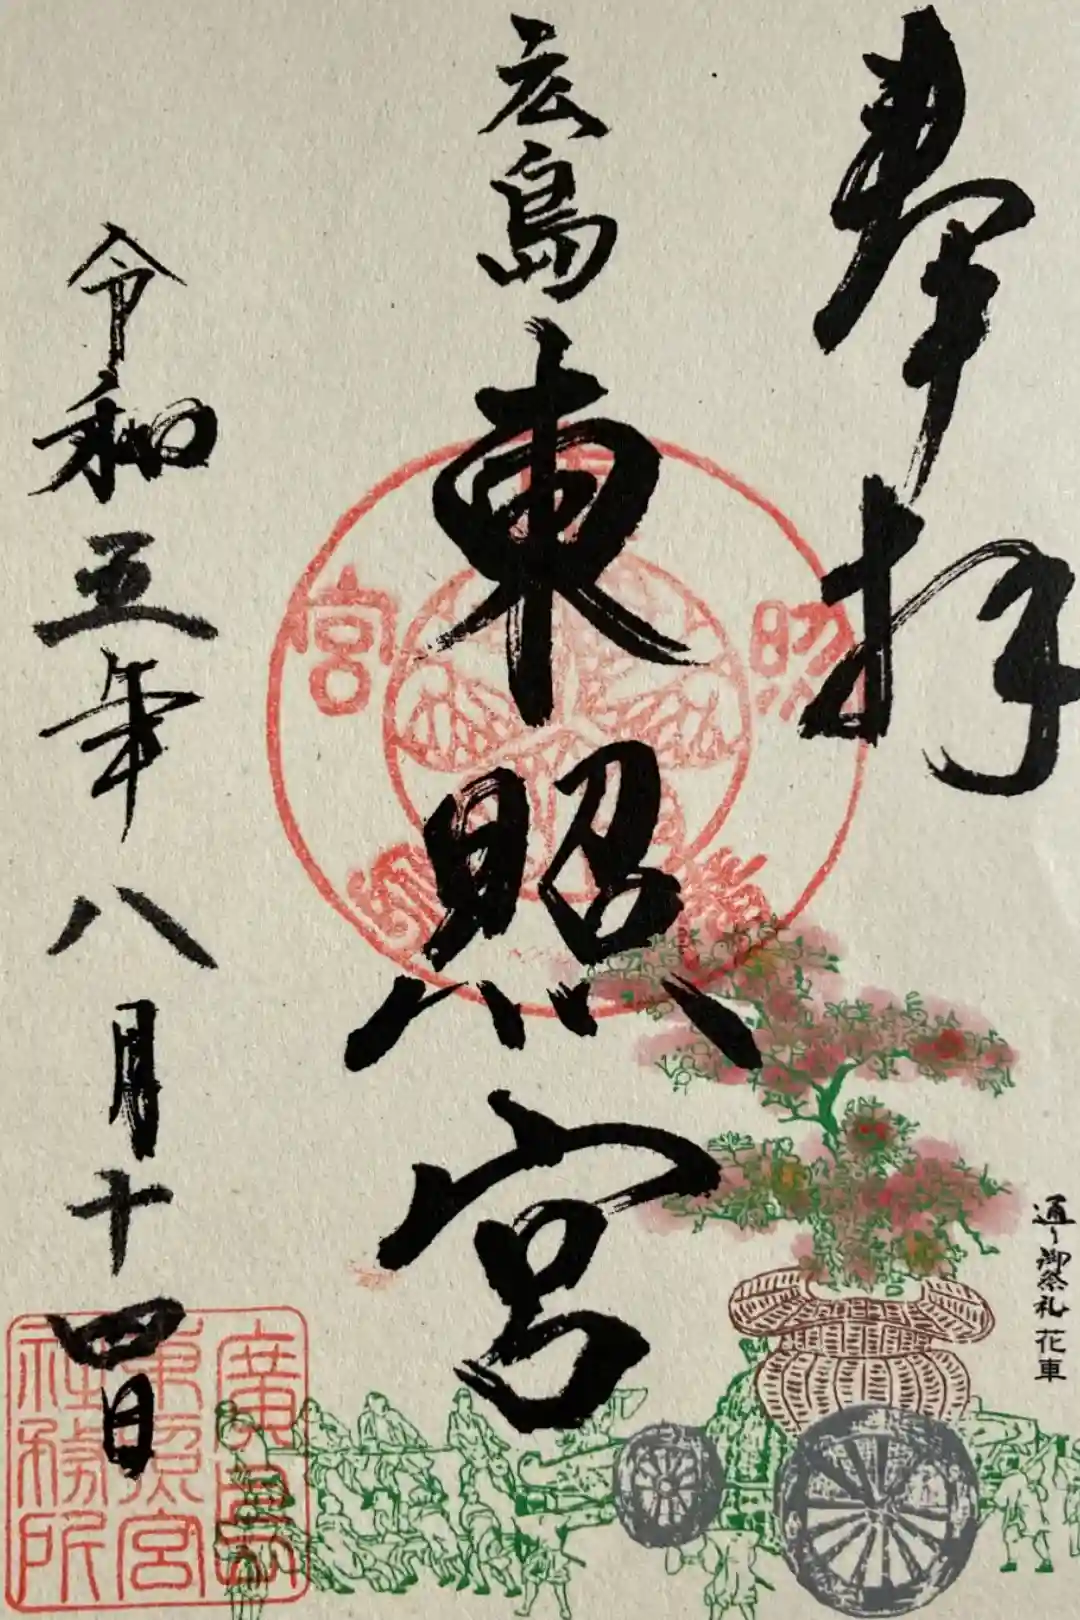 奉拝
広島
東照宮
令和五年八月十四日
通り御祭礼 花車
照
宮
廣島
東照宮
社務所